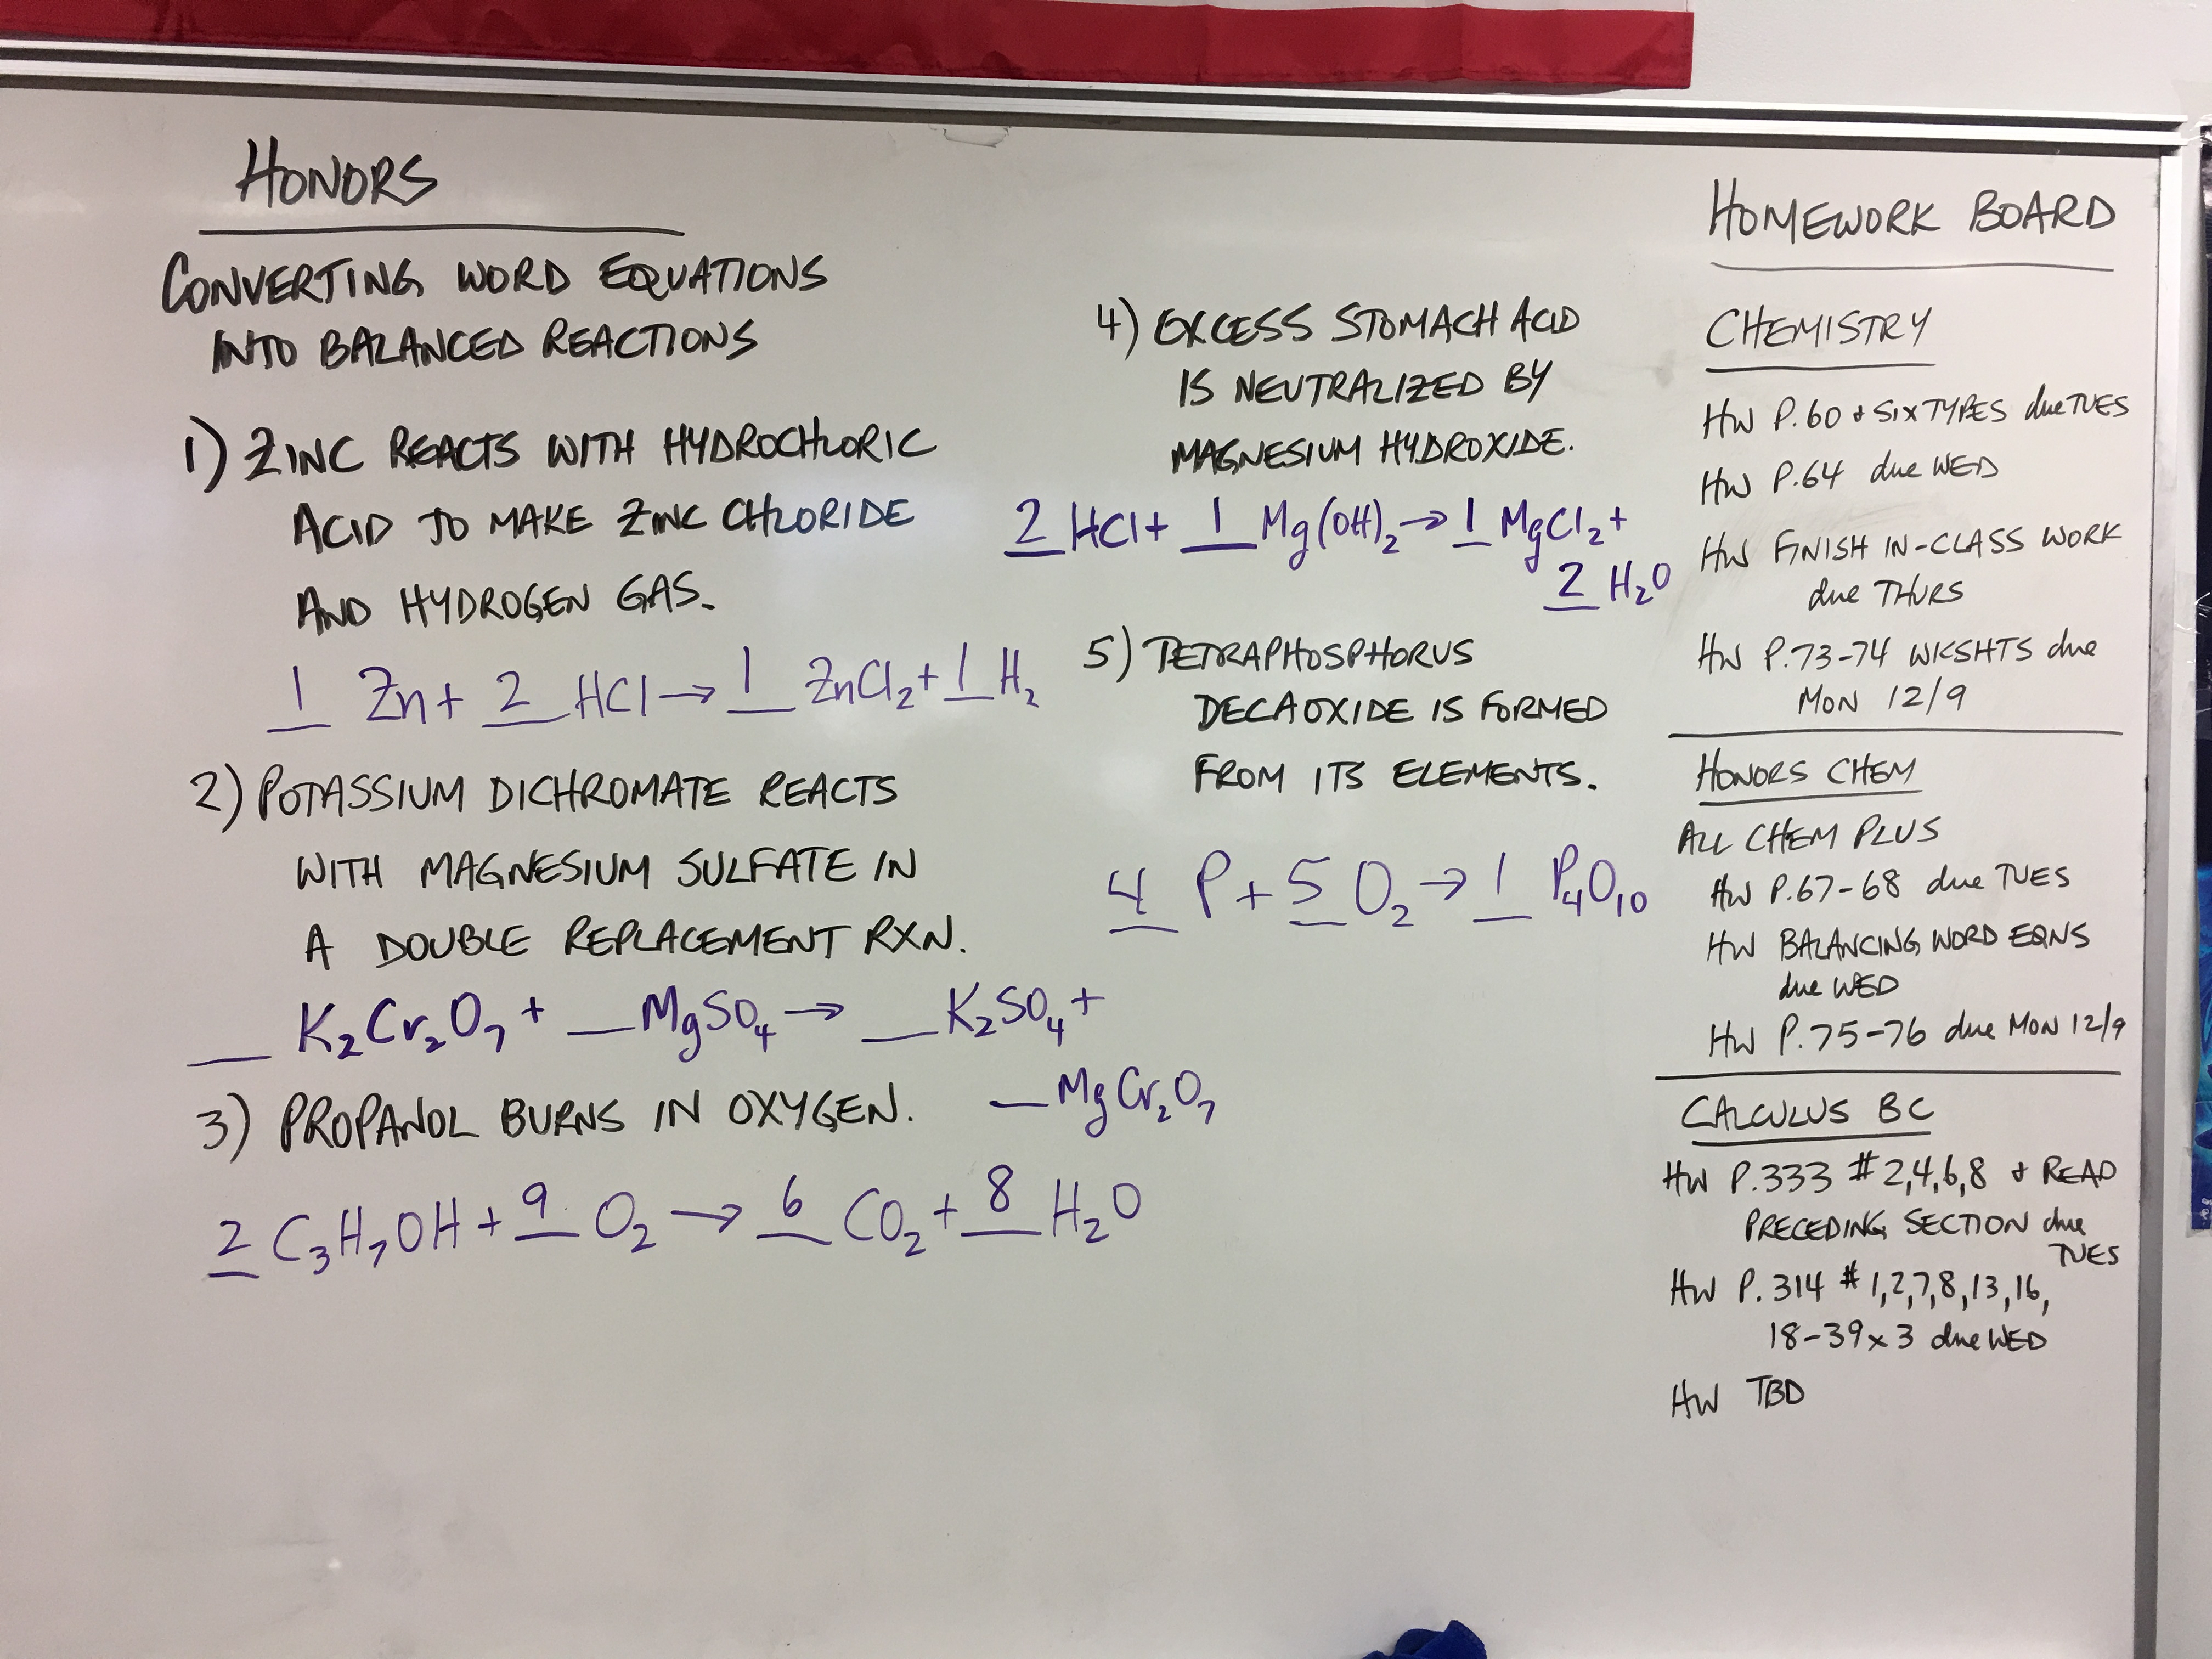 HONORS
CONVERTING WORD EQUATIONS
INTO BALANCED REACTIONS
1) ZINC REACTS WITH HYDROCHLORIC
ACID TO MAKE ZINC CHLORIDE
AND HYDROGEN GAS.
1 Zn + 2 HCl → 1 ZnCl₂ + 1 H₂
2) POTASSIUM DICHROMATE REACTS
WITH MAGNESIUM SULFATE IN
A DOUBLE REPLACEMENT RXN.
__ K₂Cr₂O₇ + __ MgSO₄ → __ K₂SO₄ +
__ MgCr₂O₇
3) PROPANOL BURNS IN OXYGEN.
2 C₃H₇OH + 9 O₂ → 6 CO₂ + 8 H₂O
4) EXCESS STOMACH ACID
IS NEUTRALIZED BY
MAGNESIUM HYDROXIDE.
2 HCl + 1 Mg(OH)₂ → 1 MgCl₂ +
2 H₂O
5) TETRAPHOSPHORUS
DECAOXIDE IS FORMED
FROM ITS ELEMENTS.
4 P + 5 O₂ → 1 P₄O₁₀
HOMEWORK BOARD
CHEMISTRY
HW P.60 + SIX TYPES due TUES
HW P.64 due WED
HW FINISH IN-CLASS WORK
due THURS
HW P.73-74 WKSHTS due
MON 12/9
HONORS CHEM
ALL CHEM PLUS
HW P.67-68 due TUES
HW BALANCING WORD EQNS
due WED
HW P.75-76 due MON 12/9
CALCULUS BC
HW P.333 #2,4,6,8 + READ
PRECEDING SECTION due
TUES
HW P.314 #1,2,7,8,13,16,
18-39x3 due WED
HW TBD